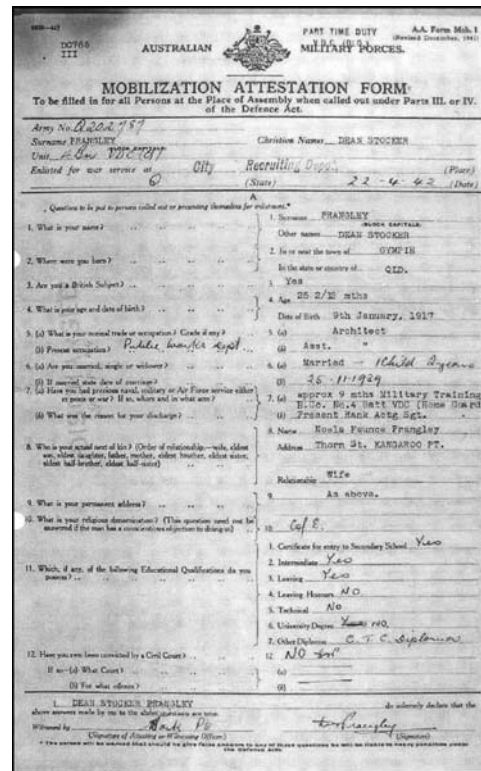 DO765
III
AUSTRALIAN
PART TIME DUTY
MILITARY FORCES.
A.A. Form Mob. 1
(Revised December, 1941)
MOBILIZATION ATTESTATION FORM
To be filled in for all Persons at the Place of Assembly when called out under Parts III. or IV.
of the Defence Act.
Army No. Q202787
Surname FRANGLEY Christian Names DEAN STOCKER
Unit
Enlisted for war service at City Recruiting Depot (Place)
Q (State) 22-4-42 (Date)
A
Questions to be put to persons called out or presenting themselves for enlistment.*
1. What is your name?
1. Surname PRANGLEY
(BLOCK CAPITALS)
Other names DEAN STOCKER
2. Where were you born?
2. In or near the town of GYMPIE
In the state or country of QLD.
3. Are you a British Subject?
3. Yes
4. What is your age and date of birth?
4. Age 25 2/12 mths
Date of Birth 9th January, 1917
5. (a) What is your normal trade or occupation? Grade if any?
5. (a) Architect
(b) Present occupation? Public Works Dept.
(b) Asst. "
6. (a) Are you married, single or widower?
6. (a) Married - 1 Child 2 years
(b) If married state date of marriage?
(b) 25-11-1939
7. (a) Have you had previous naval, military or Air Force service either in peace or war? If so, where and in what arm?
7. (a) approx 9 mths Military Training
No.4 Batt VDC (Home Guard
(b) What was the reason for your discharge?
(b) Present Rank Actg Sgt.
8. Who is your actual next of kin? (Order of relationship—wife, eldest son, eldest daughter, father, mother, eldest brother, eldest sister, eldest half-brother, eldest half-sister)
8. Name Noela Faunce Prangley
Address Thorn St. KANGAROO PT.
Relationship Wife
9. What is your permanent address?
9. As above.
10. What is your religious denomination? (This question need not be answered if the man has a conscientious objection to doing so)
10. C of E.
11. Which, if any, of the following Educational Qualifications do you possess?
1. Certificate for entry to Secondary School Yes
2. Intermediate Yes
3. Leaving Yes
4. Leaving Honours NO
5. Technical No
6. University Degree NO.
7. Other Diplomas C.T.C. Diploma
12. Have you ever been convicted by a Civil Court?
12. NO
If so—(a) What Court?
(a)
(b) For what offence?
(b)
I, DEAN STOCKER PRANGLEY do solemnly declare that the
above answers made by me to the above questions are true.
Witnessed by
(Signature of Attesting or Witnessing Officer)
(Signature)
* The person will be warned that should he give false answers to any of these questions he will be liable to heavy penalties under
the Defence Act.